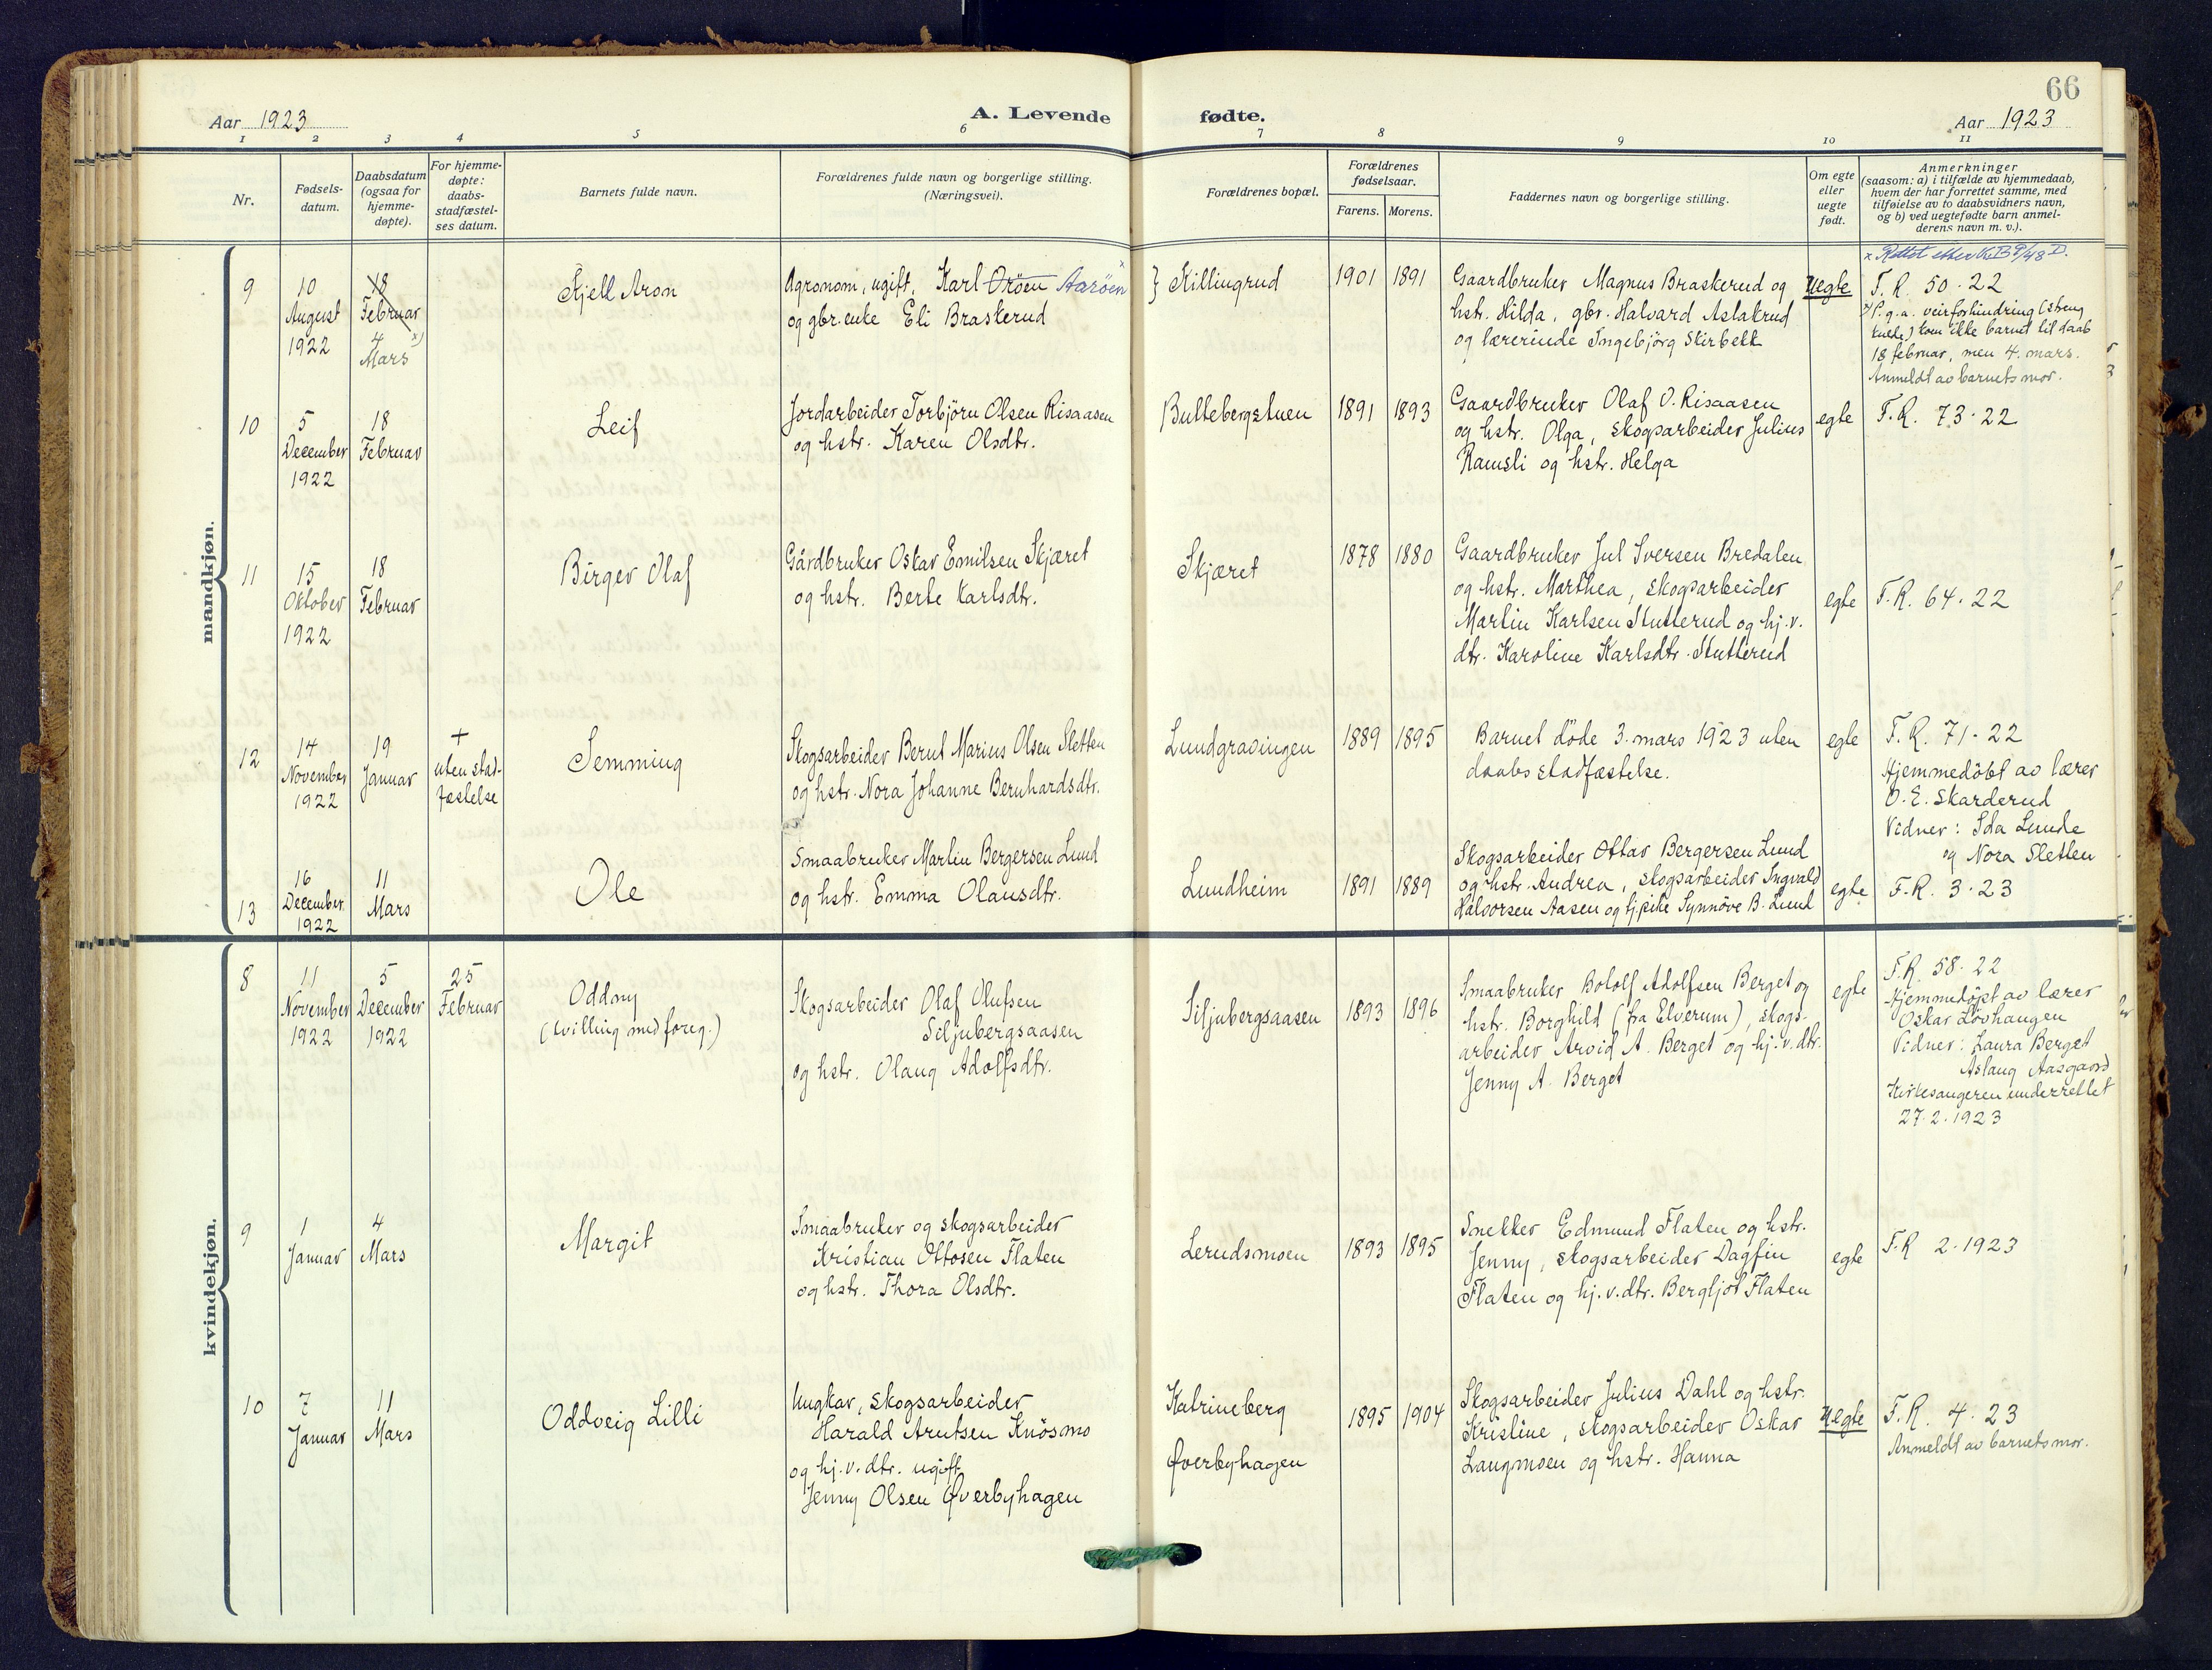 66
Aar 1923
A. Levende fødte.
Aar 1923
1 2 3 4 5 6 7 8 9 10 11
Nr.
Fødsels-
datum.
Daabsdatum
(ogsaa for
hjemme-
døpte).
For hjemme-
døpte:
daabs-
stadfæstel-
ses datum.
Barnets fulde navn.
Forældrenes fulde navn og borgerlige stilling.
(Næringsvei).
Forældrenes bopæl.
Forældrenes
fødselsaar.
Farens. Morens.
Faddernes navn og borgerlige stilling.
Om egte
eller
uegte
født.
Anmerkninger
(saasom: a) i tilfælde av hjemmedaab,
hvem der har forrettet samme, med
tilføielse av to daabsvidners navn,
og b) ved uegtefødte barn anmel-
derens navn m. v.).
mandkjøn.
9
10
August
1922
18
Februar
4 x)
Mars
Kjell Aron
Agronom, ugift, Karl Oröen Aaröen x
og gbr. enke Eli Braskerud
} Killingrud
1901 1891
Gaardbruker Magnus Braskerud og
hstr. Hilda, gbr. Halvard Aslakrud
og lærerinde Ingebjörg Skirbekk
uegte
x Rettet efter
F. R. 50 · 22
x) P. g. a. veirforhindring (streng
kulde) kom ikke barnet til daab
18 februar, men 4. mars.
Anmeldt av barnets mor.
10
5
December
1922
18
Februar
Leif
Jordarbeider Torbjörn Olsen Risaasen
og hstr. Karen Olsdtr.
Bullebergstuen
1891 1893
Gaardbruker Olaf O. Risaasen
og hstr. Olga, skogsarbeider Julius
Ramsli og hstr. Helga
egte
F. R. 73 · 22
11
15
Oktober
1922
18
Februar
Birger Olaf
Gårdbruker Oskar Emilsen Skjæret
og hstr. Berte Karlsdtr.
Skjæret
1878 1880
Gaardbruker Jul Iversen Bredalen
og hstr. Marthea, skogsarbeider
Martin Karlsen Stutterud og hj. v.
dtr. Karoline Karlsdtr. Stutterud
egte
F. R. 64 · 22
12
14
November
1922
19
Januar
+
uten stad-
fæstelse
Semming
Skogsarbeider Bernt Marius Olsen Sletten
og hstr. Nora Johanne Bernhardsdtr.
Lundgravingen
1889 1895
Barnet döde 3. mars 1923 uten
daabsstadfæstelse.
egte
F. R. 71 · 22
Hjemmedöbt av lærer
O. E. Skarderud
Vidner: Ida Lunde
og Nora Sletten
13
16
December
1922
11
Mars
Ole
Smaabruker Martin Bergersen Lund
og hstr. Emma Olausdtr.
Lundheim
1891 1889
Skogsarbeider Ottar Bergersen Lund
og hstr. Andrea, skogsarbeider Ingvald
Halvorsen Aasen og pike Synnöve B. Lund
egte
F. R. 3 · 23
kvindekjøn.
8
11
November
1922
5
December
1922
25
Februar
Oddny
(tvilling med foreg.)
Skogsarbeider Olaf Olufsen
Siljubergsaasen
og hstr. Olaug Adolfsdtr.
Siljubergsaasen
1893 1896
Smaabruker Botolf Adolfsen Berget og
hstr. Borghild (fra Elverum), skogs-
arbeider Arvid A. Berget og hj. v. dtr.
Jenny A. Berget
egte
F. R. 58 · 22
Hjemmedöpt av lærer
Oskar Lövhaugen
Vidner: Laura Berget
Aslaug Aasgaard
Kirkesangeren underrettet
27 · 2 · 1923
9
1
Januar
4
Mars
Margit
Smaabruker og skogsarbeider
Kristian Ottosen Flaten
og hstr. Thora Olsdtr.
Lerudsmoen
1893 1895
Snekker Edmund Flaten og hstr.
Jenny, skogsarbeider Dagfin
Flaten og hj. v. dtr. Bergljot Flaten
egte
F. R 2 · 1923
10
7
Januar
11
Mars
Oddveig Lilli
Ungkar, skogsarbeider
Harald Arntsen Knösmo
og hj. v. dtr. ugift
Jenny Olsen Øverbyhagen
Katrineberg
Øverbyhagen
1895 1904
Skogsarbeider Julius Dahl og hstr.
Kristine, skogsarbeider Oskar
Langmoen og hstr. Hanna
uegte
F. R. 4 · 23
Anmeldt av barnets mor.